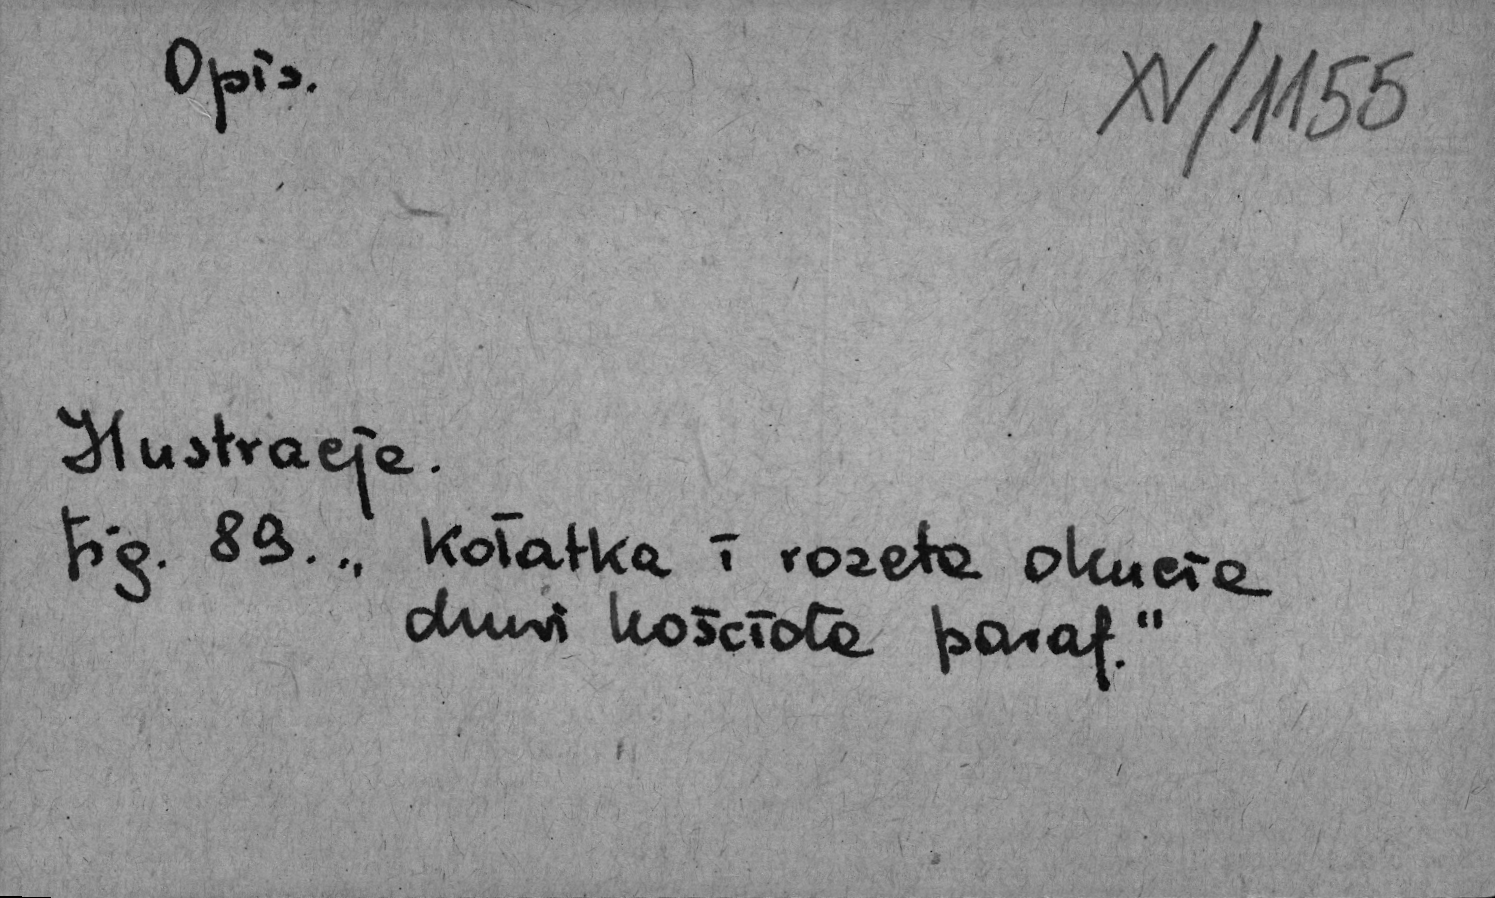 Opis.
XV/1155
Ilustracje.
Fig. 89. „Kołatka i rozeta okucia
drzwi kościoła paraf."